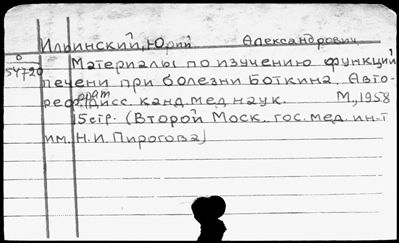 Ильинский, Юрий Александрович
0
54720
Материалы по изучению функций
печени при болезни Боткина. Авто-
реферат дисс. канд. мед. наук. М., 1958
15 стр. (Второй Моск. гос. мед. ин-т
им. Н.И. Пирогова)